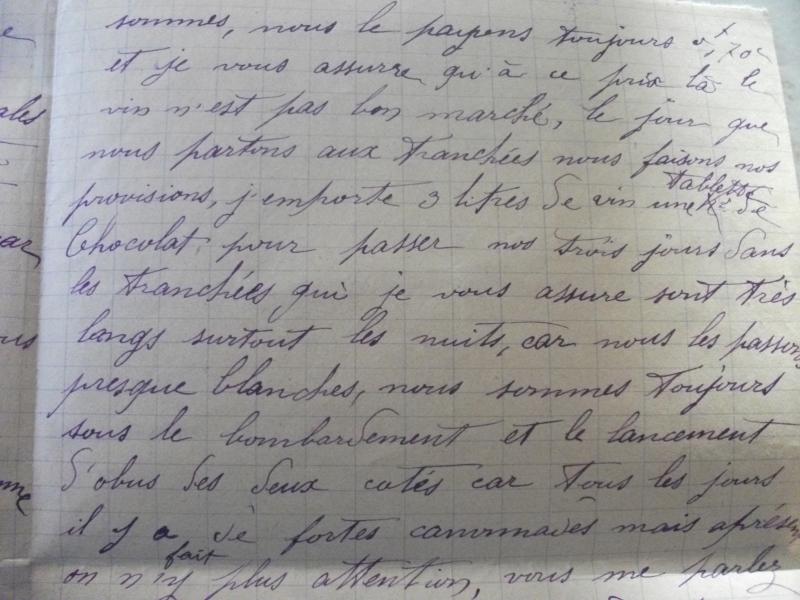 sommes, nous le payons toujours 0f,70c
et je vous assurre qu'à ce prix là le
vin n'est pas bon marché, le jour que
nous partons aux tranchées nous faisons nos
provisions, j'emporte 3 litres de vin une tablette de
Chocolat pour passer nos trois jours dans
les tranchées qui je vous assure sont très
longs surtout les nuits, car nous les passons
presque blanches, nous sommes toujours
sous le bombardement et le lancement
d'obus des deux cotés car tous les jours
il y a de fortes canonnades mais après
on n'y fait plus attention, vous me parlez